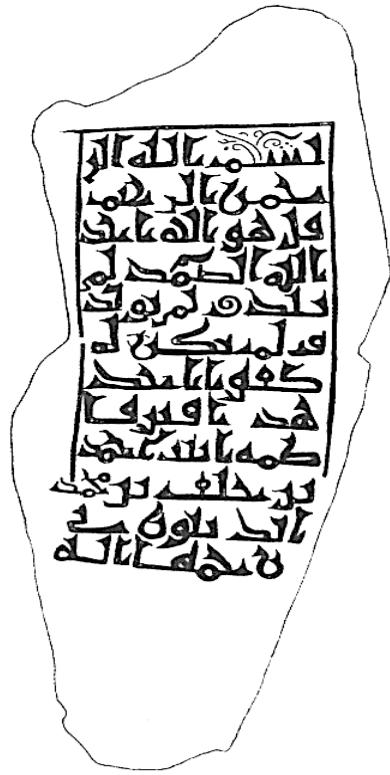 بسم الله الر
حمن الرحيم
قل هو الله احد
الله الصمد لم
يلد و لم يولد
و لم يكن له
كفوا احد
هذا قبر فا
طمه ابنت
بن خلف بن محمد
ن رحمها الله